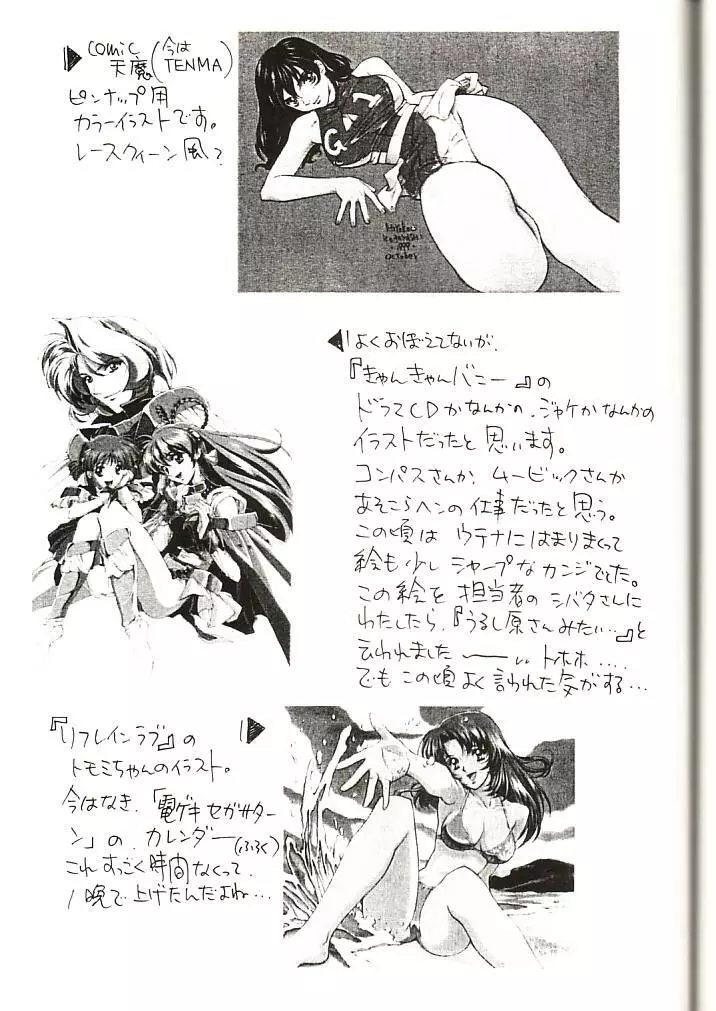 comic (今は
天魔 TENMA)
ピンナップ用
カラーイラストです。
レースクィーン風?
GAL
1999
october
よくおぼえてないが、
『きゃんきゃんバニー』の
ドラマCDかなんかの、ジャケかなんかの
イラストだったと思います。
コンパスさんか、ムービックさんか
あそこらヘンの仕事だったと思う。
この頃は ウテナにはまりまくって
絵も少し シャープなカンジでした。
この絵を 担当者の シバタさんに
わたしたら、『うるし原さんみたい…』と
云われました ──… トホホ ….
でも この頃 よく 言われた 気がする…
『リフレインラブ』の
トモミちゃんのイラスト。
今はなき、「電ゲキ セガサター
ン」の、カレンダー(ふろく)
これ すっごく 時間 なくって、
1晩で 上げたんだよね…